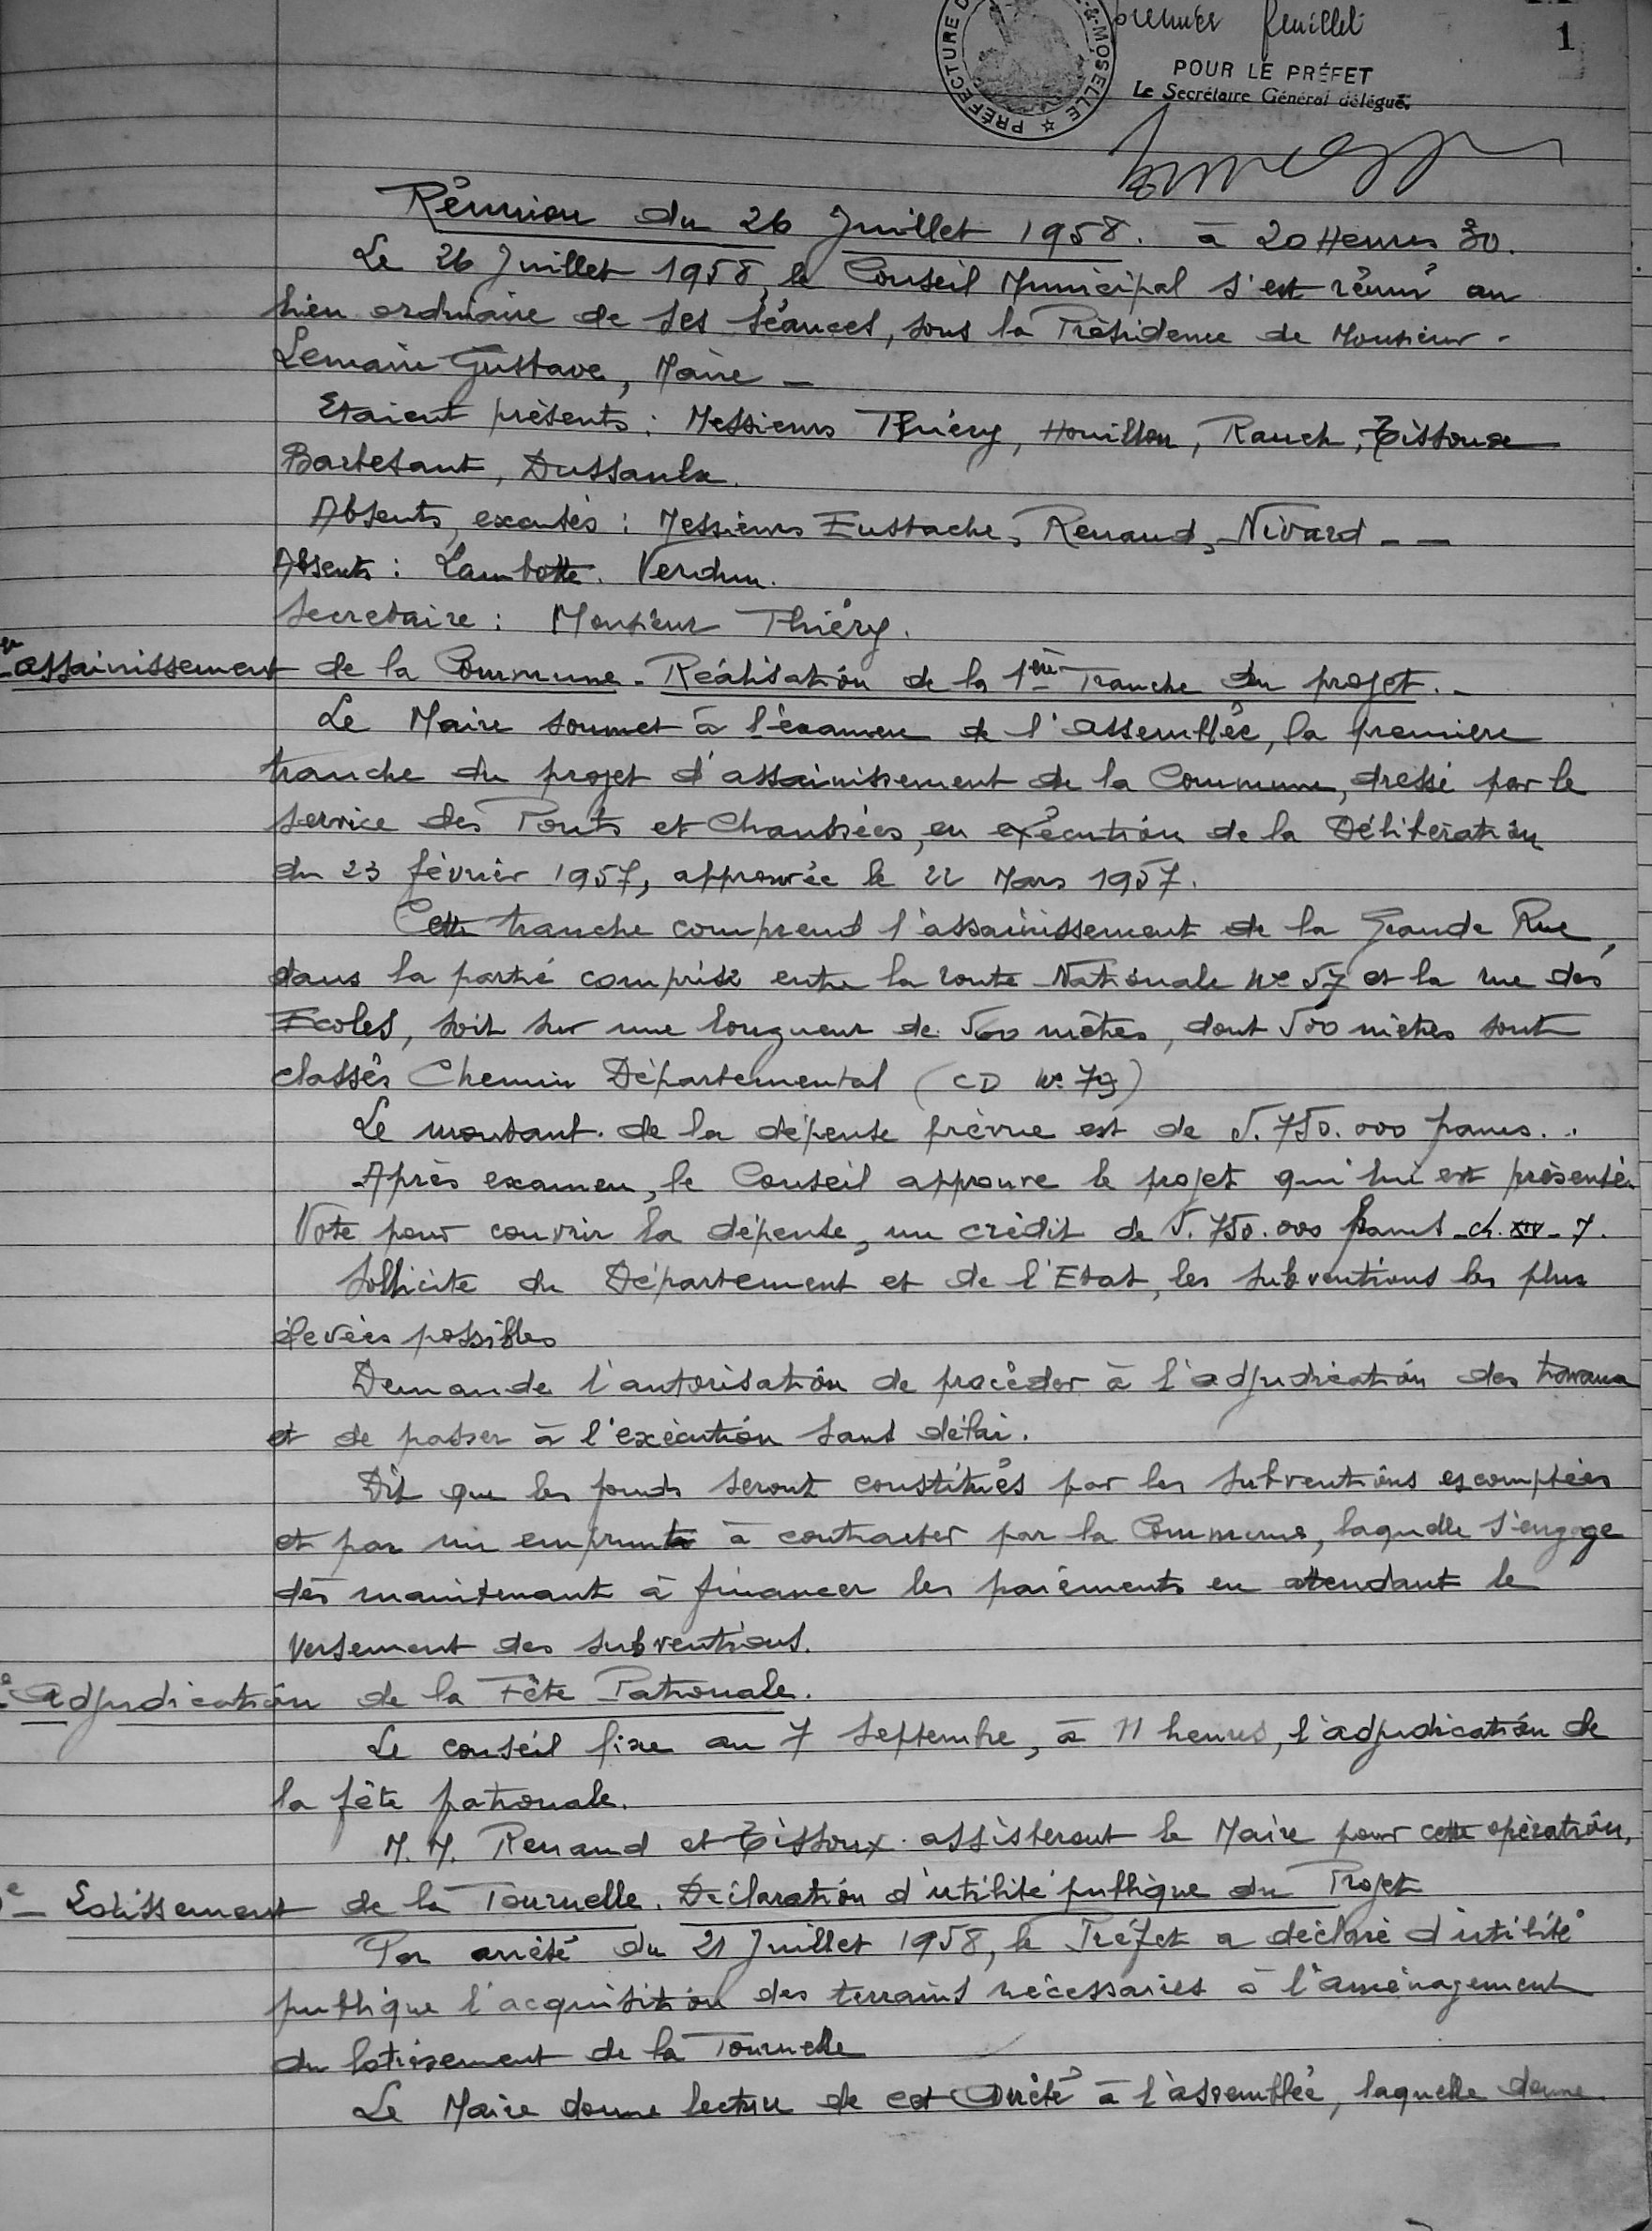 premier feuillet
1
PRÉFECTURE D
&-MOSELLE
POUR LE PRÉFET
Le Secrétaire Général délégué.
Réunion du 26 Juillet 1958. à 20 Heures 30.
Le 26 Juillet 1958, le Conseil Municipal s'est réuni au
lieu ordinaire de ses séances, sous la Présidence de Monsieur -
Lemaire Gustave, Maire -
Etaient présents : Messieurs Thiéry, Houillon, Rauch, Tissoux
Barbesant, Dussaulx.
Absents, excusés : Messieurs Eustache, Renaud, Nivard - -
Absents : Lambotte. Verdun.
Secretaire : Monsieur Thiéry.
assainissement de la Commune - Réalisation de la 1ère Tranche du projet. -
Le Maire soumet à l'examen de l'assemblée, la première
tranche du projet d'assainissement de la Commune, dressé par le
service des Ponts et Chaussées, en exécution de la Délibération
du 23 février 1957, approuvée le 22 Mars 1957.
Cette tranche comprend l'assainissement de la Grande Rue,
dans la partie comprise entre la route Nationale N° 57 et la rue des
Ecoles, soit sur une longueur de 560 mètres, dont 500 mètres sont
classés Chemin Départemental (CD N° 79)
Le montant de la dépense prévue est de 5.750.000 francs..
Après examen, le Conseil approuve le projet qui lui est présenté.
Vote pour couvrir la dépense, un crédit de 5.750.000 francs - ch. XIV - 7.
Sollicite du Département et de l'Etat, les subventions les plus
élevées possibles
Demande l'autorisation de procéder à l'adjudication des travaux
et de passer à l'exécution sans délai.
Dit que les fonds seront constitués par les subventions escomptées
et par un emprunt à contracter par la Commune, laquelle s'engage
dès maintenant à financer les paiements en attendant le
versement des subventions.
Adjudication de la Fête Patronale.
Le conseil fixe au 7 Septembre, à 11 heures, l'adjudication de
la fête patronale.
M.M. Renaud et Tissoux assisteront le Maire pour cette opération.
- Lotissement de la Tournelle. Déclaration d'utilité publique du Projet
Par arrêté du 21 Juillet 1958, le Préfet a déclaré d'utilité
publique l'acquisition des terrains nécessaires à l'aménagement
du lotissement de la Tournelle
Le Maire donne lecture de cet arrêté à l'assemblée, laquelle donne